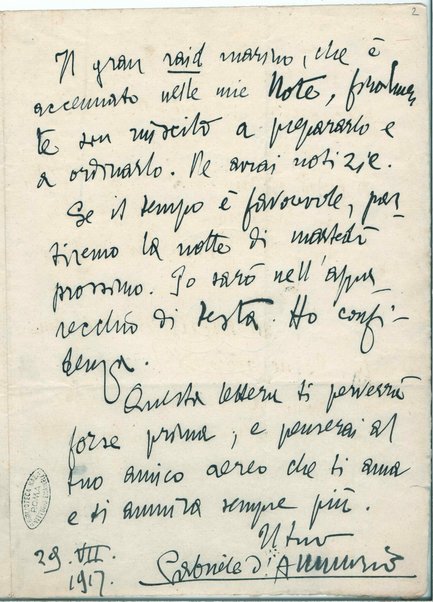 2
Il gran raid marino, che è
accennato nelle mie Note, finalmen-
te son riuscito a prepararlo e
a ordinarlo. Ne avrai notizie.
Se il tempo è favorevole, par-
tiremo la notte di martedì
prossimo. Io sarò nell'appa-
recchio di testa. Ho confi-
denza.
Questa lettera ti perverrà
forse prima; e penserai al
tuo amico aereo che ti ama
e ti ammira sempre più.
Il tuo
Gabriele d'Annunzio
29. VII.
1917.
ROMA